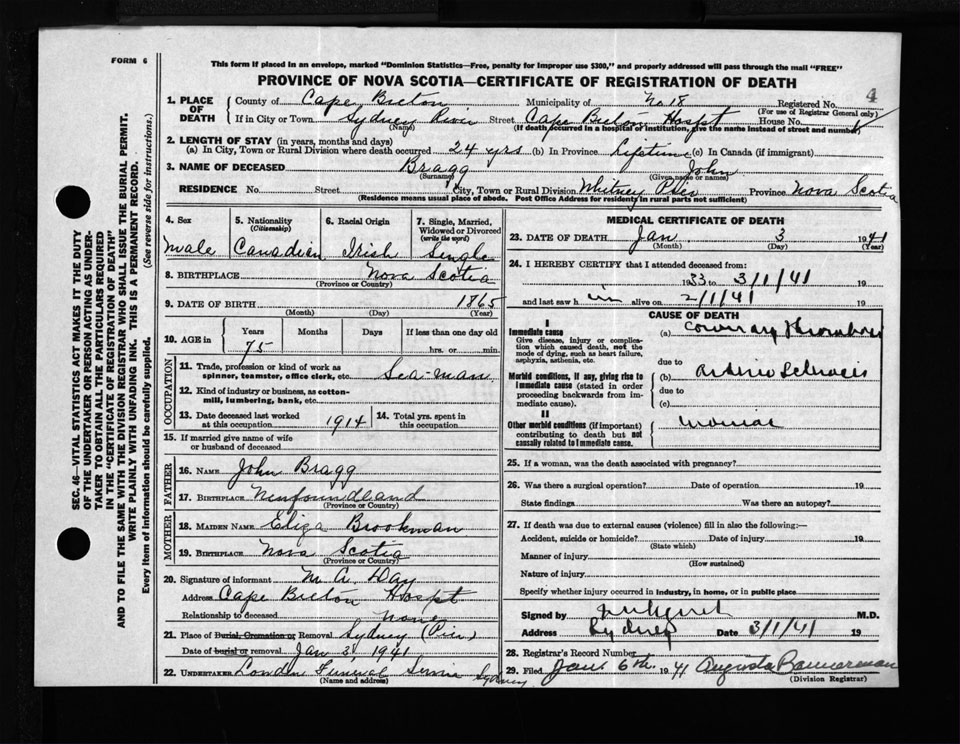 FORM 6
This form if placed in an envelope, marked "Dominion Statistics—Free, penalty for improper use $300," and properly addressed will pass through the mail "FREE"
PROVINCE OF NOVA SCOTIA—CERTIFICATE OF REGISTRATION OF DEATH
4
SEC. 46—VITAL STATISTICS ACT MAKES IT THE DUTY
OF THE UNDERTAKER OR PERSON ACTING AS UNDER-
TAKER TO OBTAIN ALL THE PARTICULARS REQUIRED
IN THE "CERTIFICATE OF REGISTRATION OF DEATH"
AND TO FILE THE SAME WITH THE DIVISION REGISTRAR WHO SHALL ISSUE THE BURIAL PERMIT.
WRITE PLAINLY WITH UNFADING INK. THIS IS A PERMANENT RECORD.
Every item of Information should be carefully supplied. (See reverse side for instructions.)
1. PLACE OF DEATH
County of Cape Breton Municipality of No 18 Registered No.
(For use of Registrar General only)
If in City or Town Sydney River Street Cape Breton Hospt House No.
(Name) (If death occurred in a hospital or institution, give the name instead of street and number)
2. LENGTH OF STAY (in years, months and days)
(a) In City, Town or Rural Division where death occurred 24 yrs (b) In Province Lifetime (c) In Canada (if immigrant)
3. NAME OF DECEASED Bragg John
(Surname) (Given name or names)
RESIDENCE No. Street City, Town or Rural Division Whitney Pier Province Nova Scotia
(Residence means usual place of abode. Post Office Address for residents in rural parts not sufficient)
4. Sex Male
5. Nationality (Citizenship) Canadian
6. Racial Origin Irish
7. Single, Married, Widowed or Divorced (write the word) Single
8. BIRTHPLACE Nova Scotia
(Province or Country)
9. DATE OF BIRTH 1865
(Month) (Day) (Year)
10. AGE in Years Months Days If less than one day old
75 hrs. or min.
OCCUPATION
11. Trade, profession or kind of work as spinner, teamster, office clerk, etc. Sea-man
12. Kind of industry or business, as cotton-mill, lumbering, bank, etc.
13. Date deceased last worked at this occupation 1914
14. Total yrs. spent in this occupation
15. If married give name of wife or husband of deceased
FATHER
16. NAME John Bragg
17. BIRTHPLACE Newfoundland
(Province or Country)
MOTHER
18. MAIDEN NAME Eliza Brookman
19. BIRTHPLACE Nova Scotia
(Province or Country)
20. Signature of informant M. A. Day
Address Cape Breton Hospt
Relationship to deceased None
21. Place of Burial, Cremation or Removal Sydney (Pier)
Date of burial or removal Jan 3 1941
22. UNDERTAKER Funeral Service Sydney
(Name and address)
MEDICAL CERTIFICATE OF DEATH
23. DATE OF DEATH Jan 3 1941
(Month) (Day) (Year)
24. I HEREBY CERTIFY that I attended deceased from:
1933 to 3/1/41 19
and last saw him alive on 2/1/41 19
CAUSE OF DEATH
I
Immediate cause
Give disease, injury or complication which caused death, not the mode of dying, such as heart failure, asphyxia, asthenia, etc.
(a) Coronary Thrombosis
due to
Morbid conditions, if any, giving rise to immediate cause (stated in order proceeding backwards from immediate cause).
(b) Arterio Sclerosis
due to
(c)
II
Other morbid conditions (if important) contributing to death but not causally related to immediate cause.
25. If a woman, was the death associated with pregnancy?
26. Was there a surgical operation? Date of operation 19
State findings Was there an autopsy?
27. If death was due to external causes (violence) fill in also the following:—
Accident, suicide or homicide? Date of injury 19
(State which)
Manner of injury
(How sustained)
Nature of injury
Specify whether injury occurred in industry, in home, or in public place
Signed by M.D.
Address Sydney Date 3/1/41 19
28. Registrar's Record Number
29. Filed Jan 6th 1941 Augusta Bannerman
(Division Registrar)